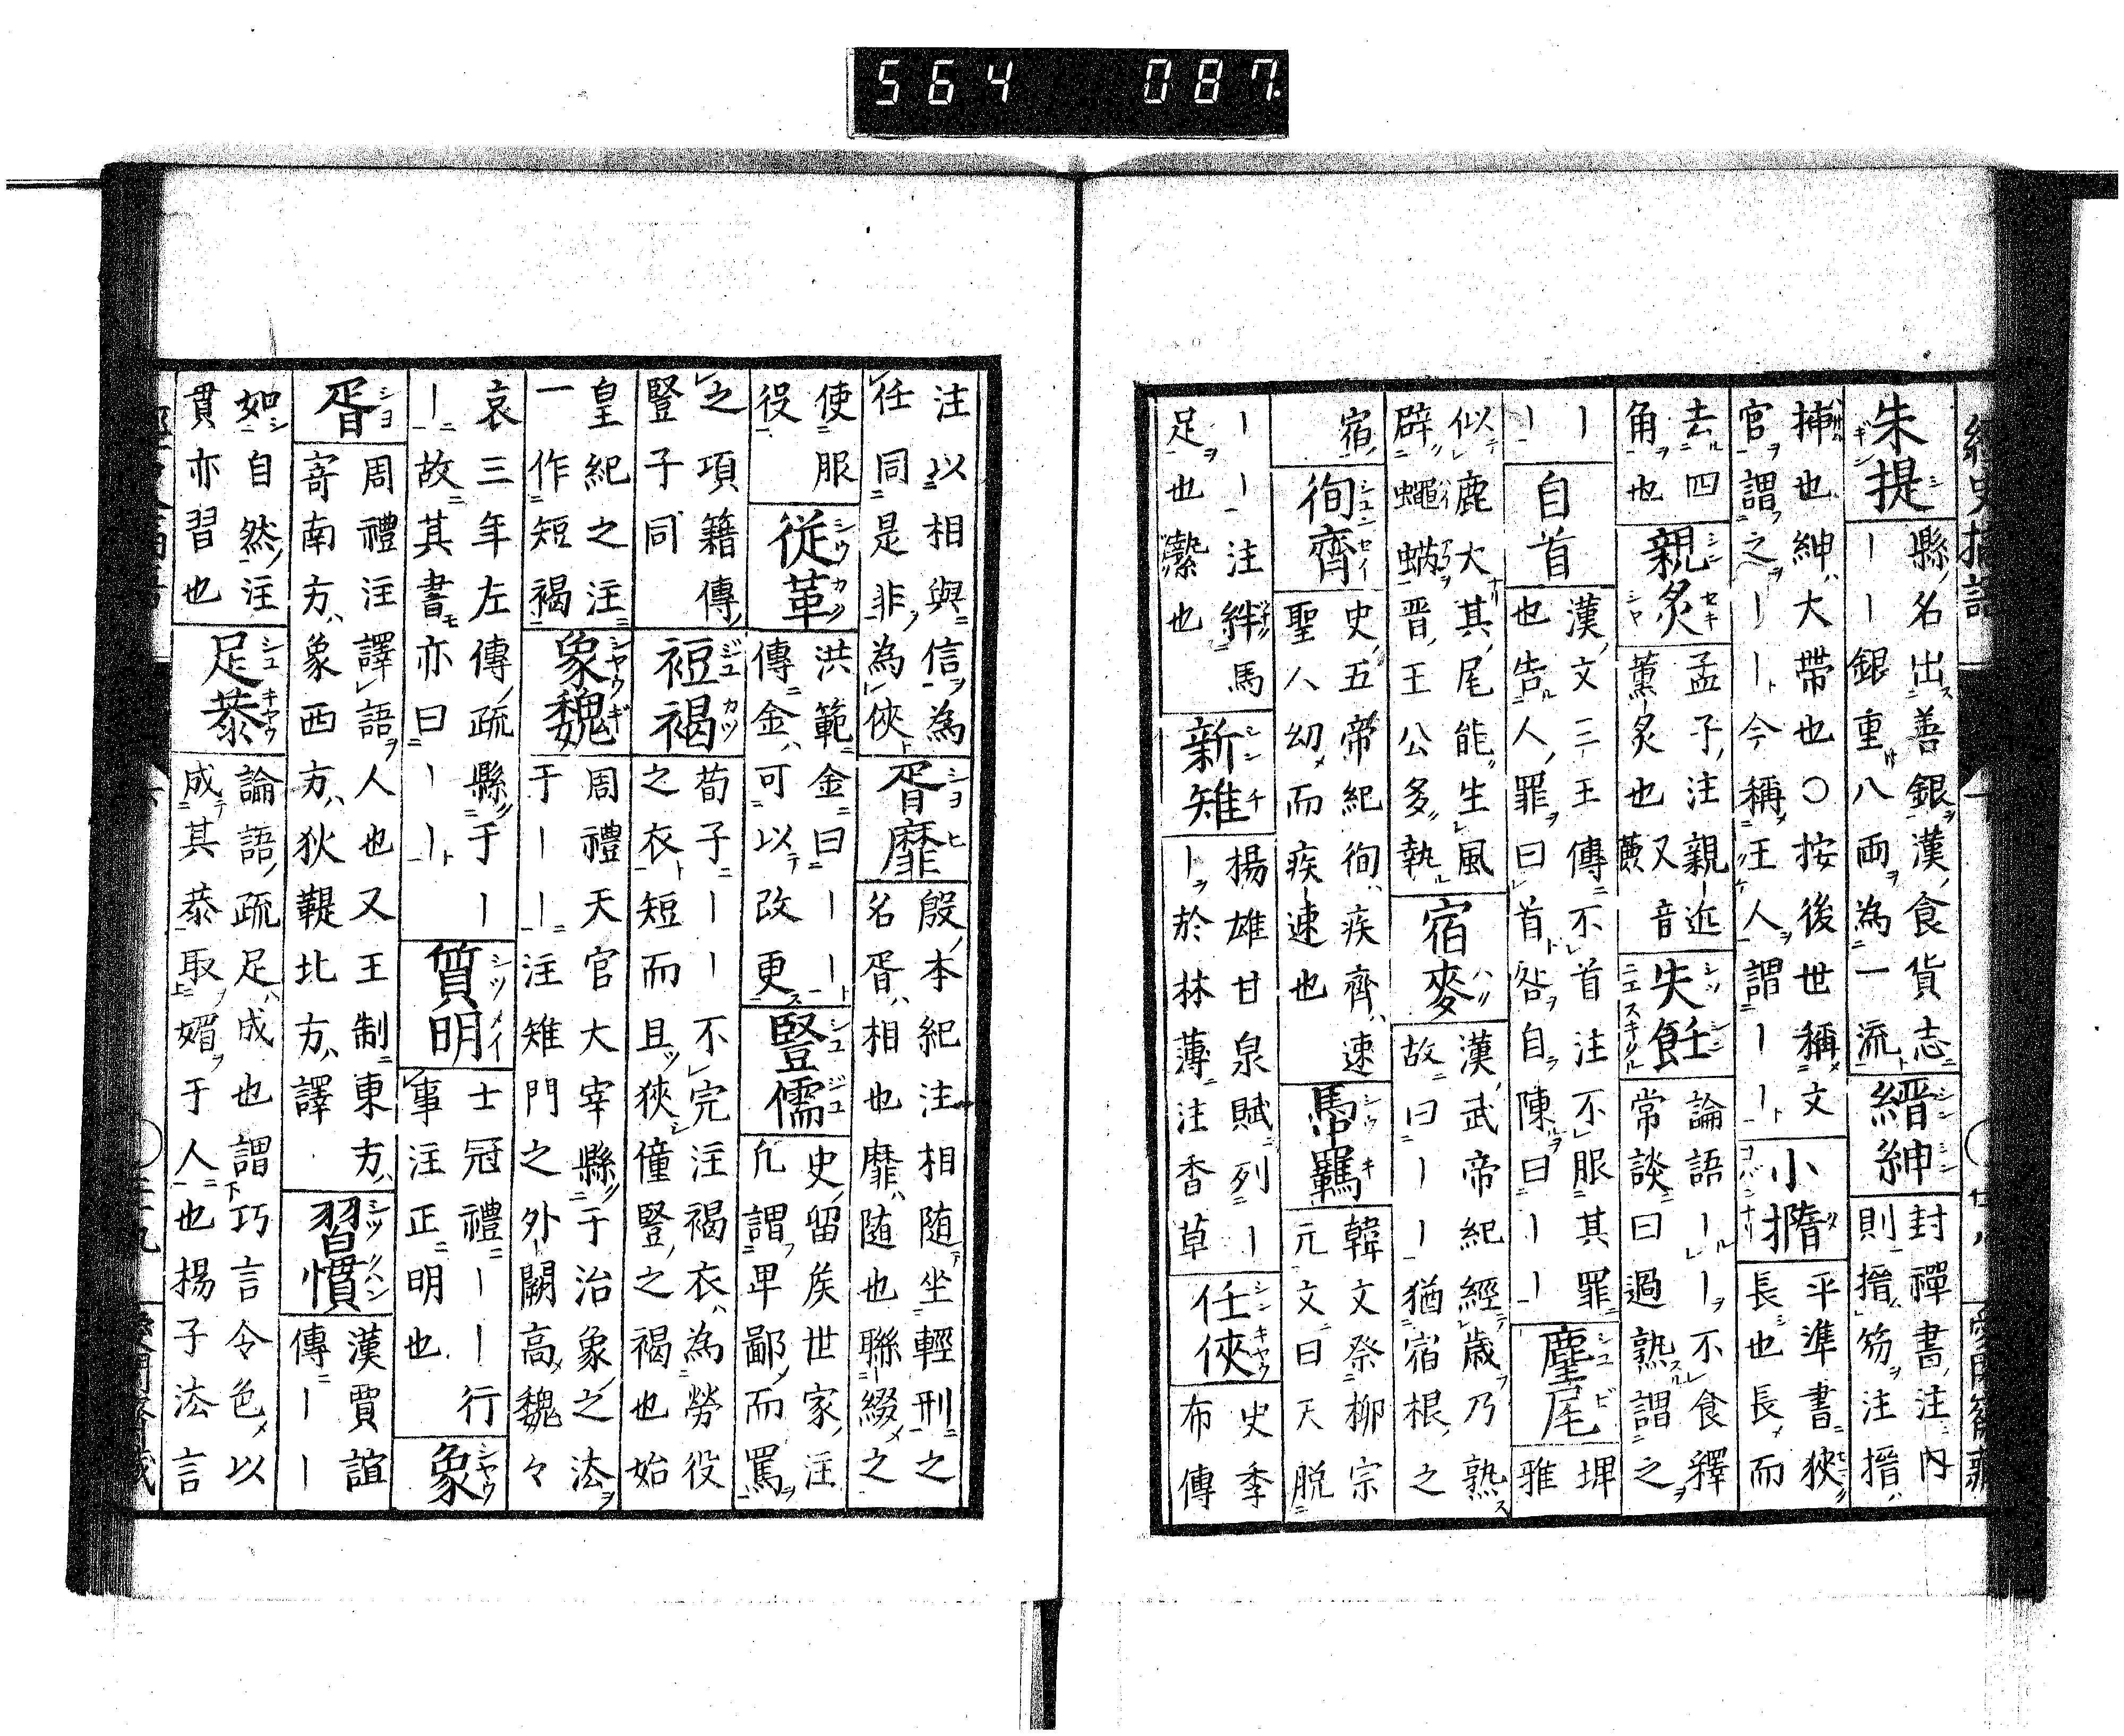 564 087.
朱提 縣名出善銀漢食貨志
｜｜銀重八兩為一流 縉紳 封禪書注内
則搢笏注搢
挿也紳大帶也〇按後世稱文
官謂之｜｜今稱王人謂｜｜ 小撱 平準書狹
長也長而
去四
角也 親炙 孟子注親近
薫炙也又音 失飪 論語｜｜不食釋
常談曰過熟謂之
｜
｜ 自首 漢文三王傳不首注不服其罪
也告人罪曰首咎自陳曰｜｜ 麈尾 埤
雅
似鹿大其尾能生風
辟蠅蜹晋王公多執 宿麥 漢武帝紀經歳乃熟
故曰｜｜猶宿根之
宿 徇齊 史五帝紀徇疾齊速
聖人幼而疾速也 馽羈 韓文祭柳宗
元文曰天脱
｜｜注絆馬
足也縶也 新雉 楊雄甘泉賦列｜
｜於林薄注香草 任俠 史季
布傳
注以相與信為
任同是非為俠 胥靡 殷本紀注相随坐輕刑之
名胥相也靡随也聯綴之
使服
役 従革 洪範金曰｜｜
傳金可以改更 豎儒 史留矦世家注
凢謂卑鄙而罵
之項籍傳
豎子同 裋褐 荀子｜｜不完注褐衣為勞役
之衣短而且狹僮豎之褐也始
皇紀之注
一作短褐 象魏 周禮天官大宰縣于治象之法
于｜｜注雉門之外闕高魏々
哀三年左傳疏縣于｜
｜故其書亦曰｜｜ 質明 士冠禮｜｜行
事注正明也 象
胥 周禮注譯語人也又王制東方
寄南方象西方狄鞮北方譯 習慣 漢賈誼
傳｜｜
如自然注
貫亦習也 足恭 論語疏足成也謂巧言令色以
成其恭取媚于人也楊子法言